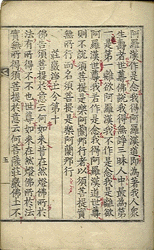 阿羅漢作是念我得阿羅漢道即為著我人衆
生壽者世尊佛說我得無諍三昧人中最為第
一是第一離欲阿羅漢我不作是念我是離欲
阿羅漢世尊我若作是念我得阿羅漢道世尊
則不說須菩提是樂阿蘭那行者以須菩提實
無所行而名須菩提是樂阿蘭那行
莊嚴淨土分第十
佛告須菩提於意云何如來昔在然燈佛所於
法有所得不不也世尊如來在然燈佛所於法
實無所得須菩提於意云何菩薩莊嚴佛
五